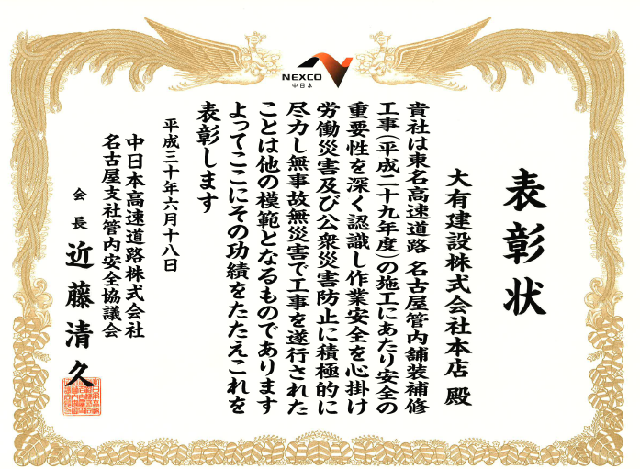 NEXCO
中日本
表彰状
大有建設株式会社本店 殿
貴社は東名高速道路 名古屋管内舗装補修
工事(平成二十九年度)の施工にあたり安全の
重要性を深く認識し作業安全を心掛け
労働災害及び公衆災害防止に積極的に
尽力し無事故無災害で工事を遂行された
ことは他の模範となるものであります
よってここにその功績をたたえこれを
表彰します
平成三十年六月十八日
中日本高速道路株式会社
名古屋支社管内安全協議会
会長 近藤清久